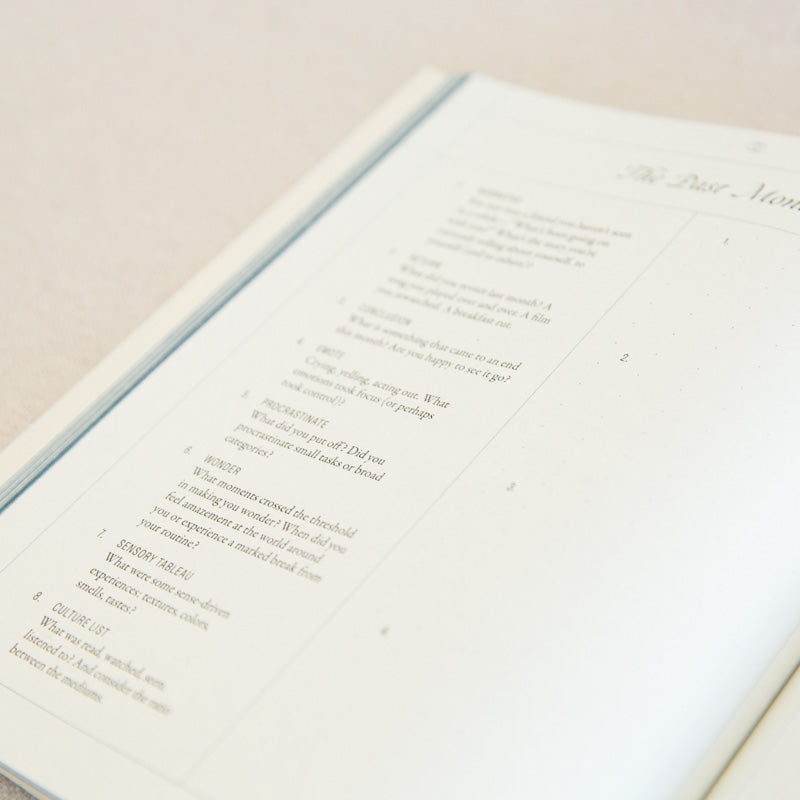 The Past Mon
yourself (and to others)?
2.
What did you revisit last month? A
song you played over and over. A film
you rewatched. A breakfast rut.
3. CONCLUSION
What is something that came to an end
this month? Are you happy to see it go?
4. EMOTE
Crying, yelling, acting out. What
emotions took focus (or perhaps
took control)?
5. PROCRASTINATE
What did you put off? Did you
procrastinate small tasks or broad
categories?
6. WONDER
What moments crossed the threshold
in making you wonder? When did you
feel amazement at the world around
you or experience a marked break from
your routine?
7. SENSORY TABLEAU
What were some sense-driven
experiences: textures, colors,
smells, tastes?
8. CULTURE LIST
What was read, watched, seen,
listened to? And consider the ratio
between the mediums.
1.
2.
3.
4.